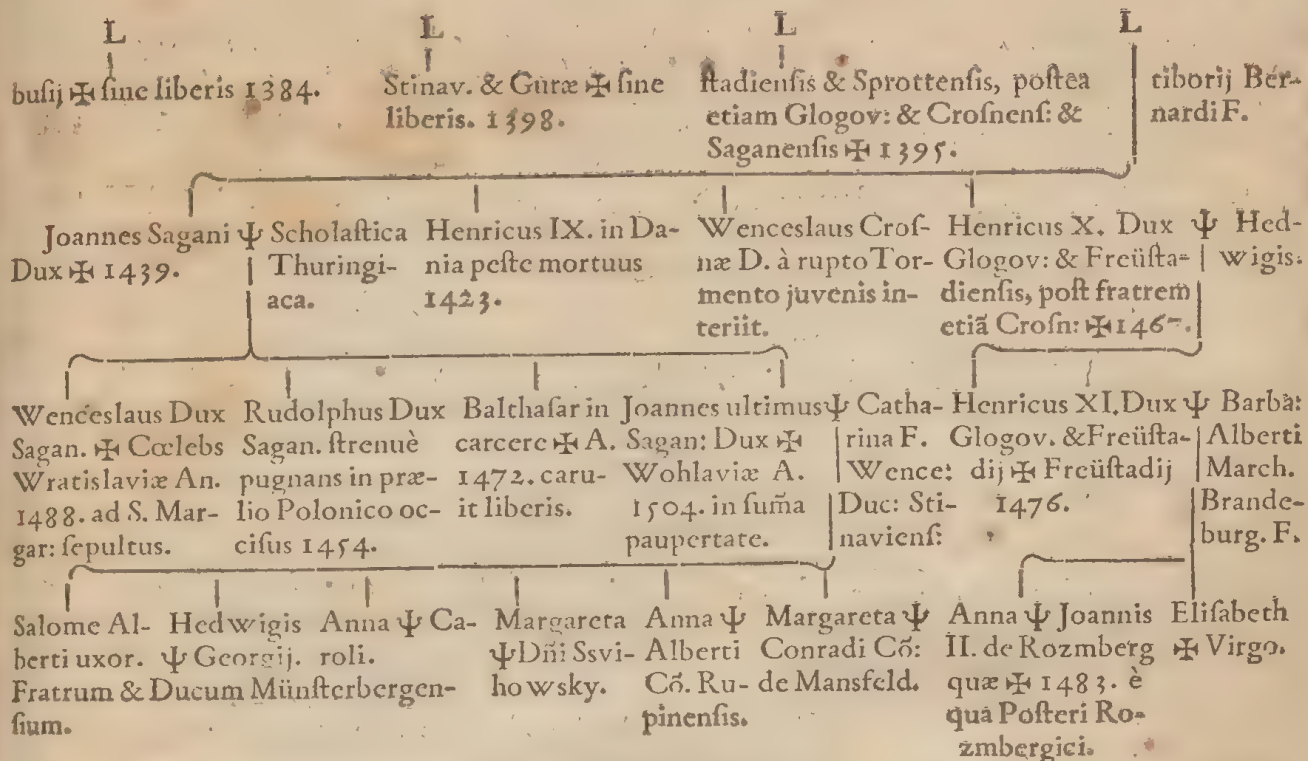 L
buſij ✠ ſine liberis 1384.
L
Stinav. & Guræ ✠ ſine
liberis. 1398.
L
ſtadienſis & Sprottenſis, poſtea
etiam Glogov: & Croſnenſ: &
Saganenſis ✠ 1395.
L
tiborij Ber-
nardi F.
Joannes Sagani Ψ
Dux ✠ 1439.
Scholaſtica
Thuringi-
aca.
Henricus IX. in Da-
nia peſte mortuus
1423.
Wenceslaus Croſ-
næ D. à rupto Tor-
mento juvenis in-
teriit.
Henricus X. Dux Ψ
Glogov: & Freüſta-
dienſis, poſt fratrem
etiã Croſn: ✠ 1467.
Hed-
wigis.
Wenceslaus Dux
Sagan. ✠ Cœlebs
Wratislaviæ An.
1488. ad S. Mar-
gar: ſepultus.
Rudolphus Dux
Sagan. ſtrenuè
pugnans in præ-
lio Polonico oc-
ciſus 1454.
Balthaſar in
carcere ✠ A.
1472. caru-
it liberis.
Joannes ultimus Ψ
Sagan: Dux ✠
Wohlaviæ A.
1504. in ſum̃a
paupertate.
Catha-
rina F.
Wence:
Duc: Sti-
navienſ:
Henricus XI. Dux Ψ
Glogov. & Freüſta-
dij ✠ Freüſtadij
1476.
Barba:
Alberti
March.
Brande-
burg. F.
Salome Al-
berti uxor.
Hedwigis
Ψ Georgij.
Anna Ψ Ca-
roli.
Fratrum & Ducum Münſterbergen-
ſium.
Margareta
Ψ Dñi Ssvi-
howsky.
Anna Ψ
Alberti
Cõ. Ru-
pinenſis.
Margareta Ψ
Conradi Cõ:
de Mansfeld.
Anna Ψ Joannis
II. de Rozmberg
quæ ✠ 1483. è
quâ Poſteri Ro-
zmbergici.
Eliſabeth
✠ Virgo.